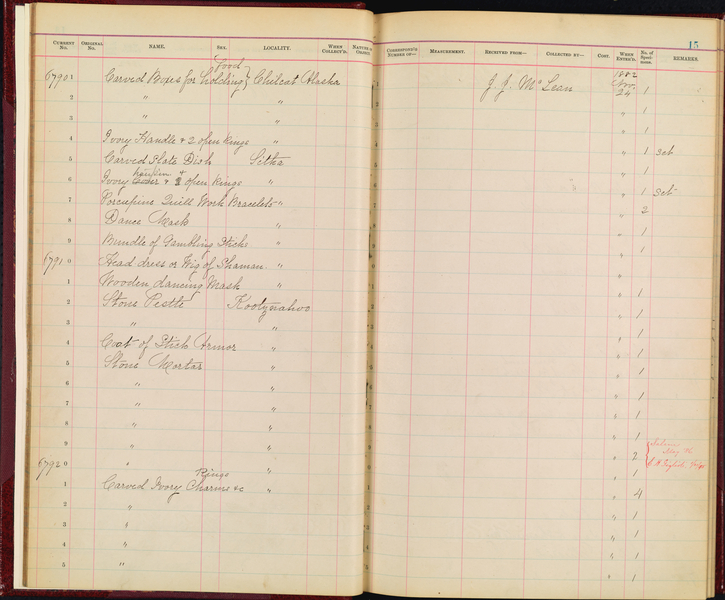 15
CURRENT No. ORIGINAL No. NAME. SEX. LOCALITY. WHEN COLLECT'D. NATURE OF OBJECT. CORRESPOND'G NUMBER OF— MEASUREMENT. RECEIVED FROM— COLLECTED BY— COST. WHEN ENTER'D. No. of Specimens. REMARKS.
67901 Carved Boxes for holding Food } Chilcat Alaska J. J. McLean 1882 Nov. 24 1
2 " " " 1
3 " " " 1
4 Ivory Handle & 2 open Rings " " 1 Set
5 Carved Slate Dish Sitka " 1
6 Ivory & open Rings " " " 1 Set
7 Porcupine Quill Work Bracelets " " 2
8 Dance Mask " " 1
9 Bundle of Gambling Sticks " " 1
67910 Head dress or Wig of Shaman " "
1 Wooden dancing Mask " " 1
2 Stone Pestle Kootznahoo " 1
3 " " " 1
4 Coat of Stick Armor " " 1
5 Stone Mortar " " 1
6 " " " 1
7 " " " 1
8 " " " 1
9 " " " 2
67920 " " " 1
1 Carved Ivory Rings Charms &c " " 4
2 " " 1
3 " " 1
4 " " 1
5 " " 1